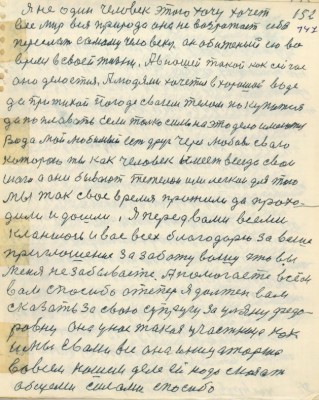 Я не один человек этого хочу хочет 152
все мир вся природа она не возражает себя 747
передать самому человеку, а он обиженый ею во
время своей жизни, Авиощей такой как сейчас
оно делостия, А людям хочется в хорошой воде
да притихой погоде своем телом но купатися
да поплавать если толко силы на это дело имеют
Вода мой любимый есть друг через любов сваго
которого ты как человек имеет всегда свои
шага а они бывают тежелои или легкои для того
мы так свое время прошли да прохо-
дили и дошли, я перед вами всеми
кланяюсь и вас всех благодарю за ваше
приглошение за заботу вашу что вы
меня не забываете, А помогаете всем
вам спосибо а теперя я должен вам
сказать за свою супругу за Ульяну федо-
ровну она у нас такая участница как
и мы с вами все она инициаторша
во всем нашем деле ей надо сказать
общеми силами спосибо